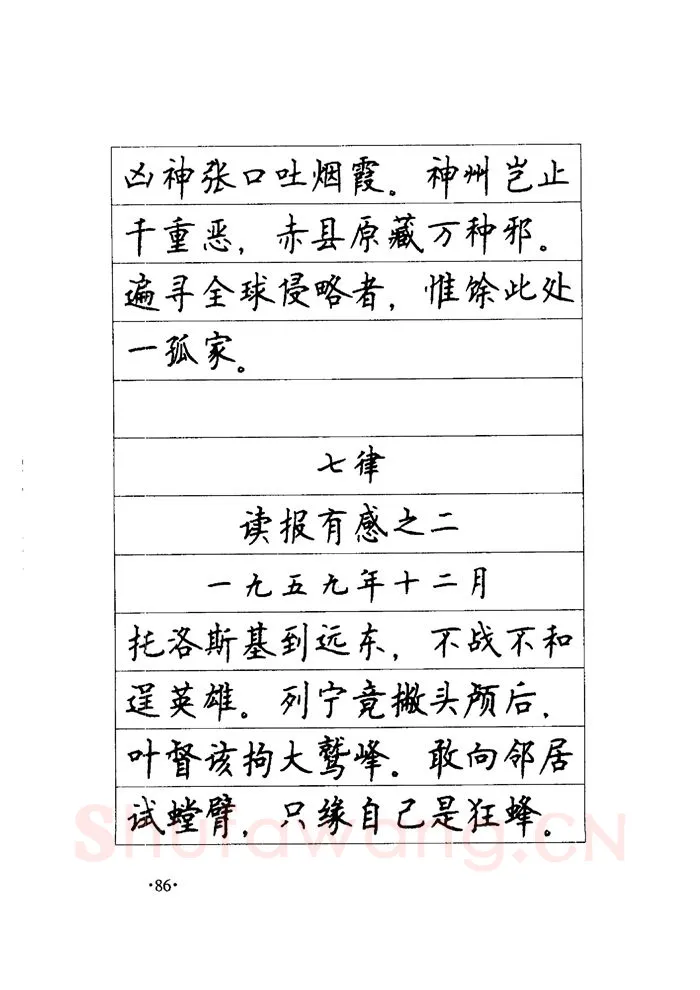 凶神张口吐烟霞。神州岂止
千重恶，赤县原藏万种邪。
遍寻全球侵略者，惟馀此处
一孤家。
七律
读报有感之二
一九五九年十二月
托洛斯基到远东，不战不和
逞英雄。列宁竟撇头颅后，
叶督该拘大鹫峰。敢向邻居
试螳臂，只缘自己是狂蜂。
Shufawang.CN
·86·